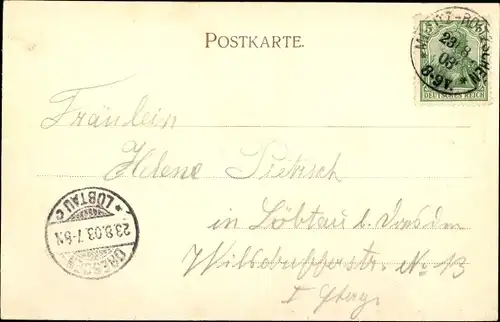 POSTKARTE.
23/8
03
DEUTSCHES REICH
Fräulein
Helene Pietzsch
in Löbtau b. Dresden
Wilsdrufferstr. No 13
I
* LÖBTAU c
23.8.03.7-8N
DRESDEN